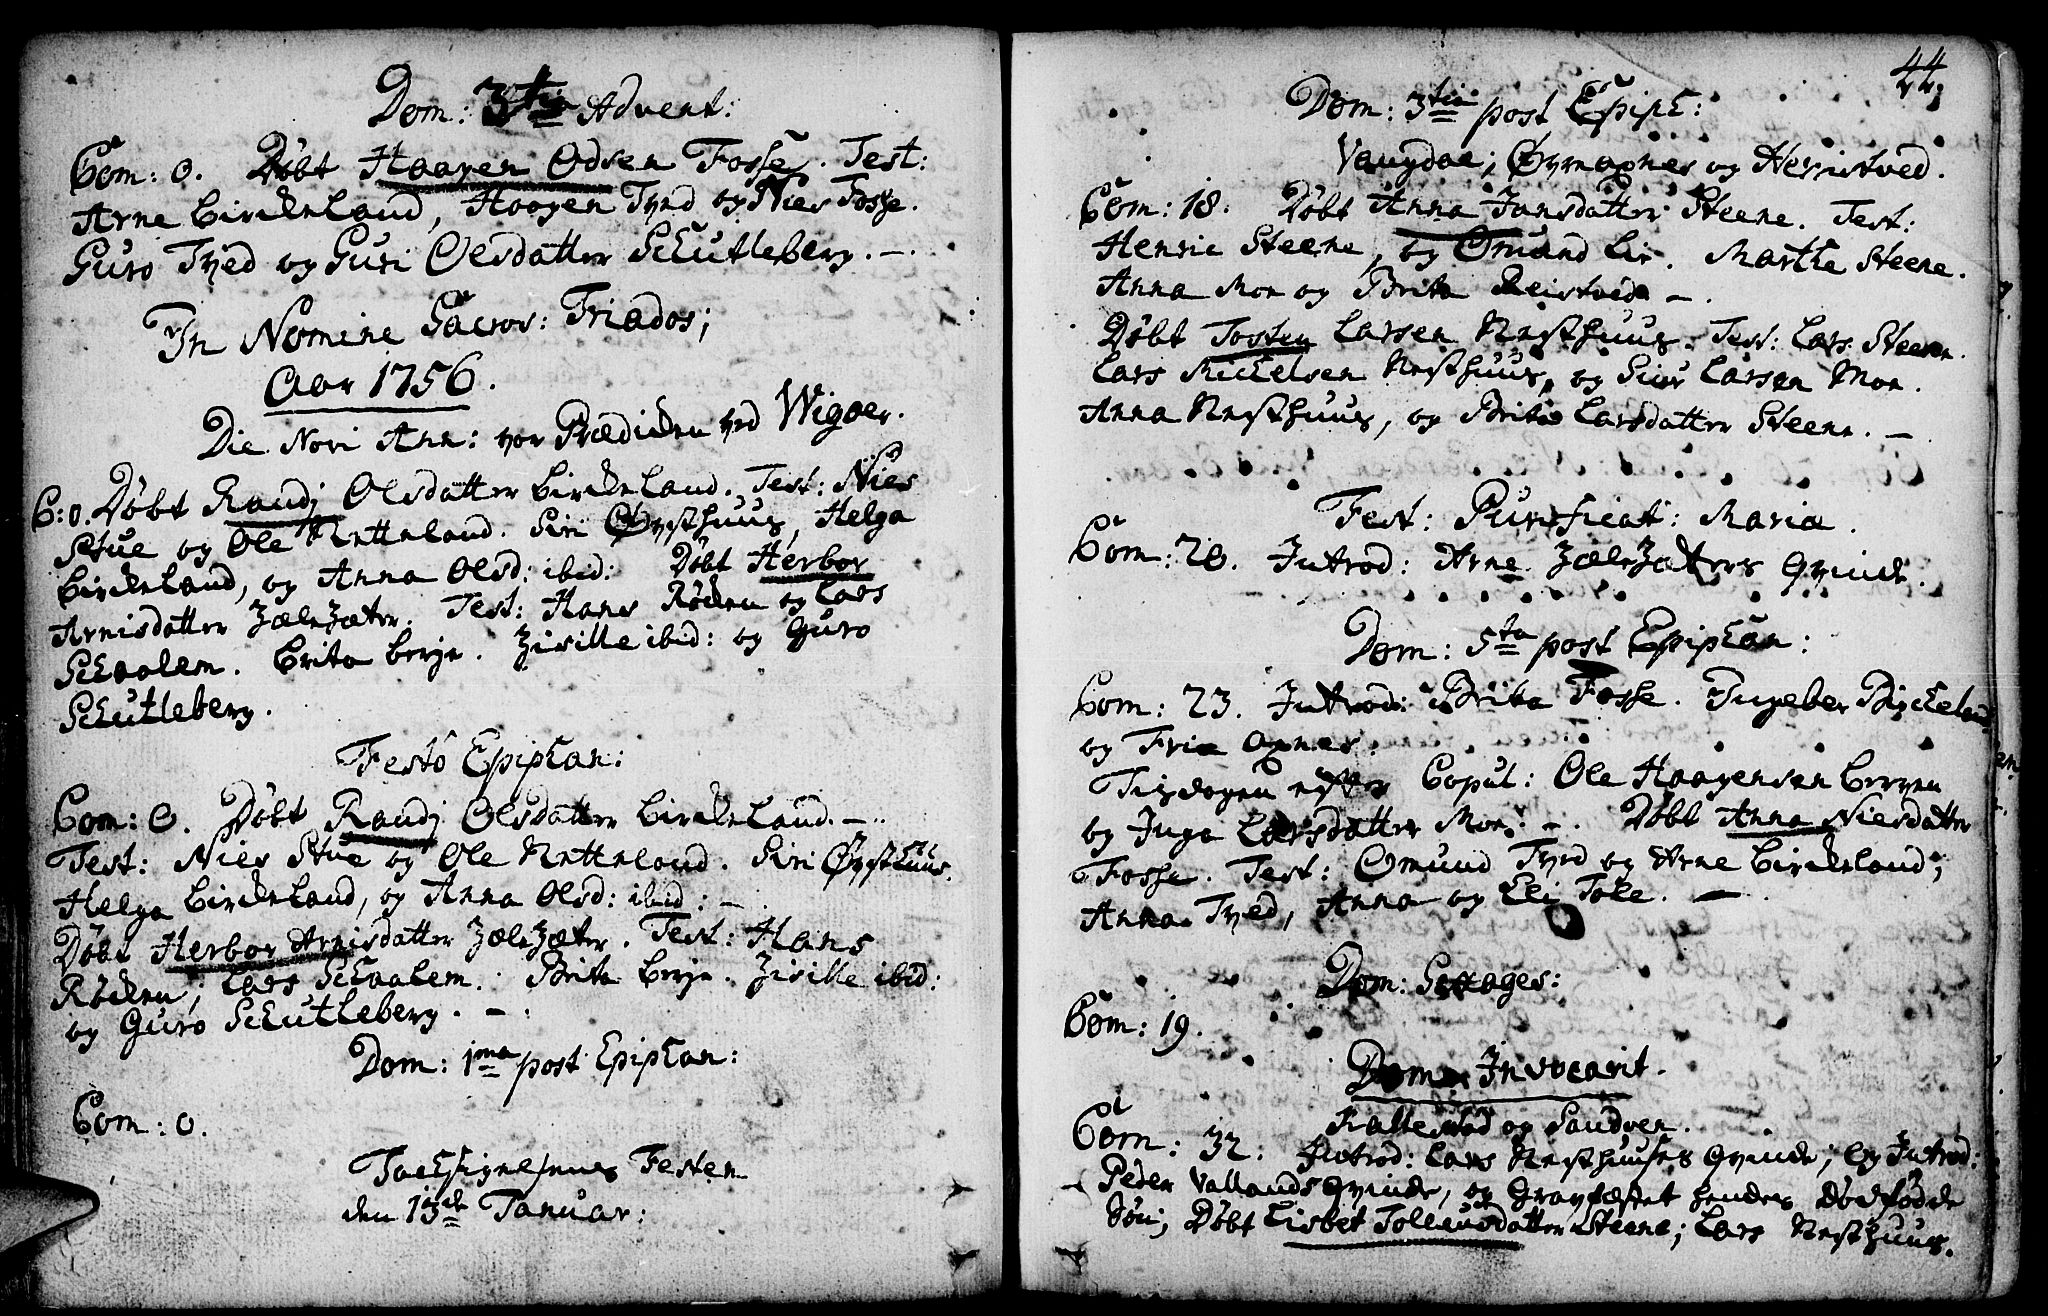 Dom: 3tia Advent:
Com: 0. Døbt Haagen Odsen Fosse. Test:
Arne Birckeland, Haagen Tved og Niels Fosse.
Guro Tved og Guri Olsdatter Schutleberg. —
In Nomine Sacros: Triados;
Aar 1756.
Die Novi Ann: var Prædicken ved Wigøer.
C: 0. Døbt Randj Olsdatter Birckeland. Test: Niels
Stue og Ole Netteland. Siri Øysthuus, Helga
Birckeland, og Anna Olsd: ibid: Døbt Herbor
Arnisdatter Zælezæter. Test: Hans Røcken og Lars
Schaalem. Brita Berje. Zisille ibid: og Guro
Schutleberg.
Festo Epiphan:
Com: 0. Døbt Randj Olsdatter Birckeland. —
Test: Niels Stue og Ole Netteland. Siri Øysthuus.
Helga Birckeland, og Anna Olsd: ibid: —
Døbt Herbor Arnisdatter Zælezæter. Test: Hans
Røcken, Lars Schaalem. Brita Berje. Zisille ibid:
og Guro Schutleberg. —
Dom: 1ma post Epiphan:
Com: 0.
Tachsigelsens Festen
den 13de Januar:
44.
Dom: 3tia post Epiph:
Vangdae, Øyenaxnes og Herristved.
Com: 18. Døbt Anna Jansdatter Steene. Test:
Henric Steene, og Omund Lie. Marthe Steene.
Anna Moe og Brita Reistved —.
Døbt Tosten Larsen Nesthuus. Test: Lars Steene.
Lars Michelsen Nesthuus, og Siur Larsen Moe.
Anna Nesthuus, og Brita Larsdatter Steene. —
Fest: Purificat: Mariæ.
Com: 20. Introd: Arne Zælezæters Qvinde.
Dom: 5ta post Epiphan:
Com: 23. Introd: Brita Fosse. Ingebor Birckeland
og Fria Axnes.
Tisdagen efter Copul: Ole Haagensen Berven
og Inga Larsdatter Moe. —. Døbt Anna Nielsdatter
Fosse. Test: Omund Tved og Arne Birckeland;
Anna Tved, Anna og Eli Toke. —
Dom: Septuages:
Com: 19.
Dom: Invocavit.
Rattestad og Sandven.
Com: 32. Introd: Lars Nesthuuses Qvinde, og Introd:
Peder Vallands Qvinde, og Gravfæstet hendes Dødfødde
Søn; Døbt Lisbet Tollevsdatter Steene; Lars Nesthuus.